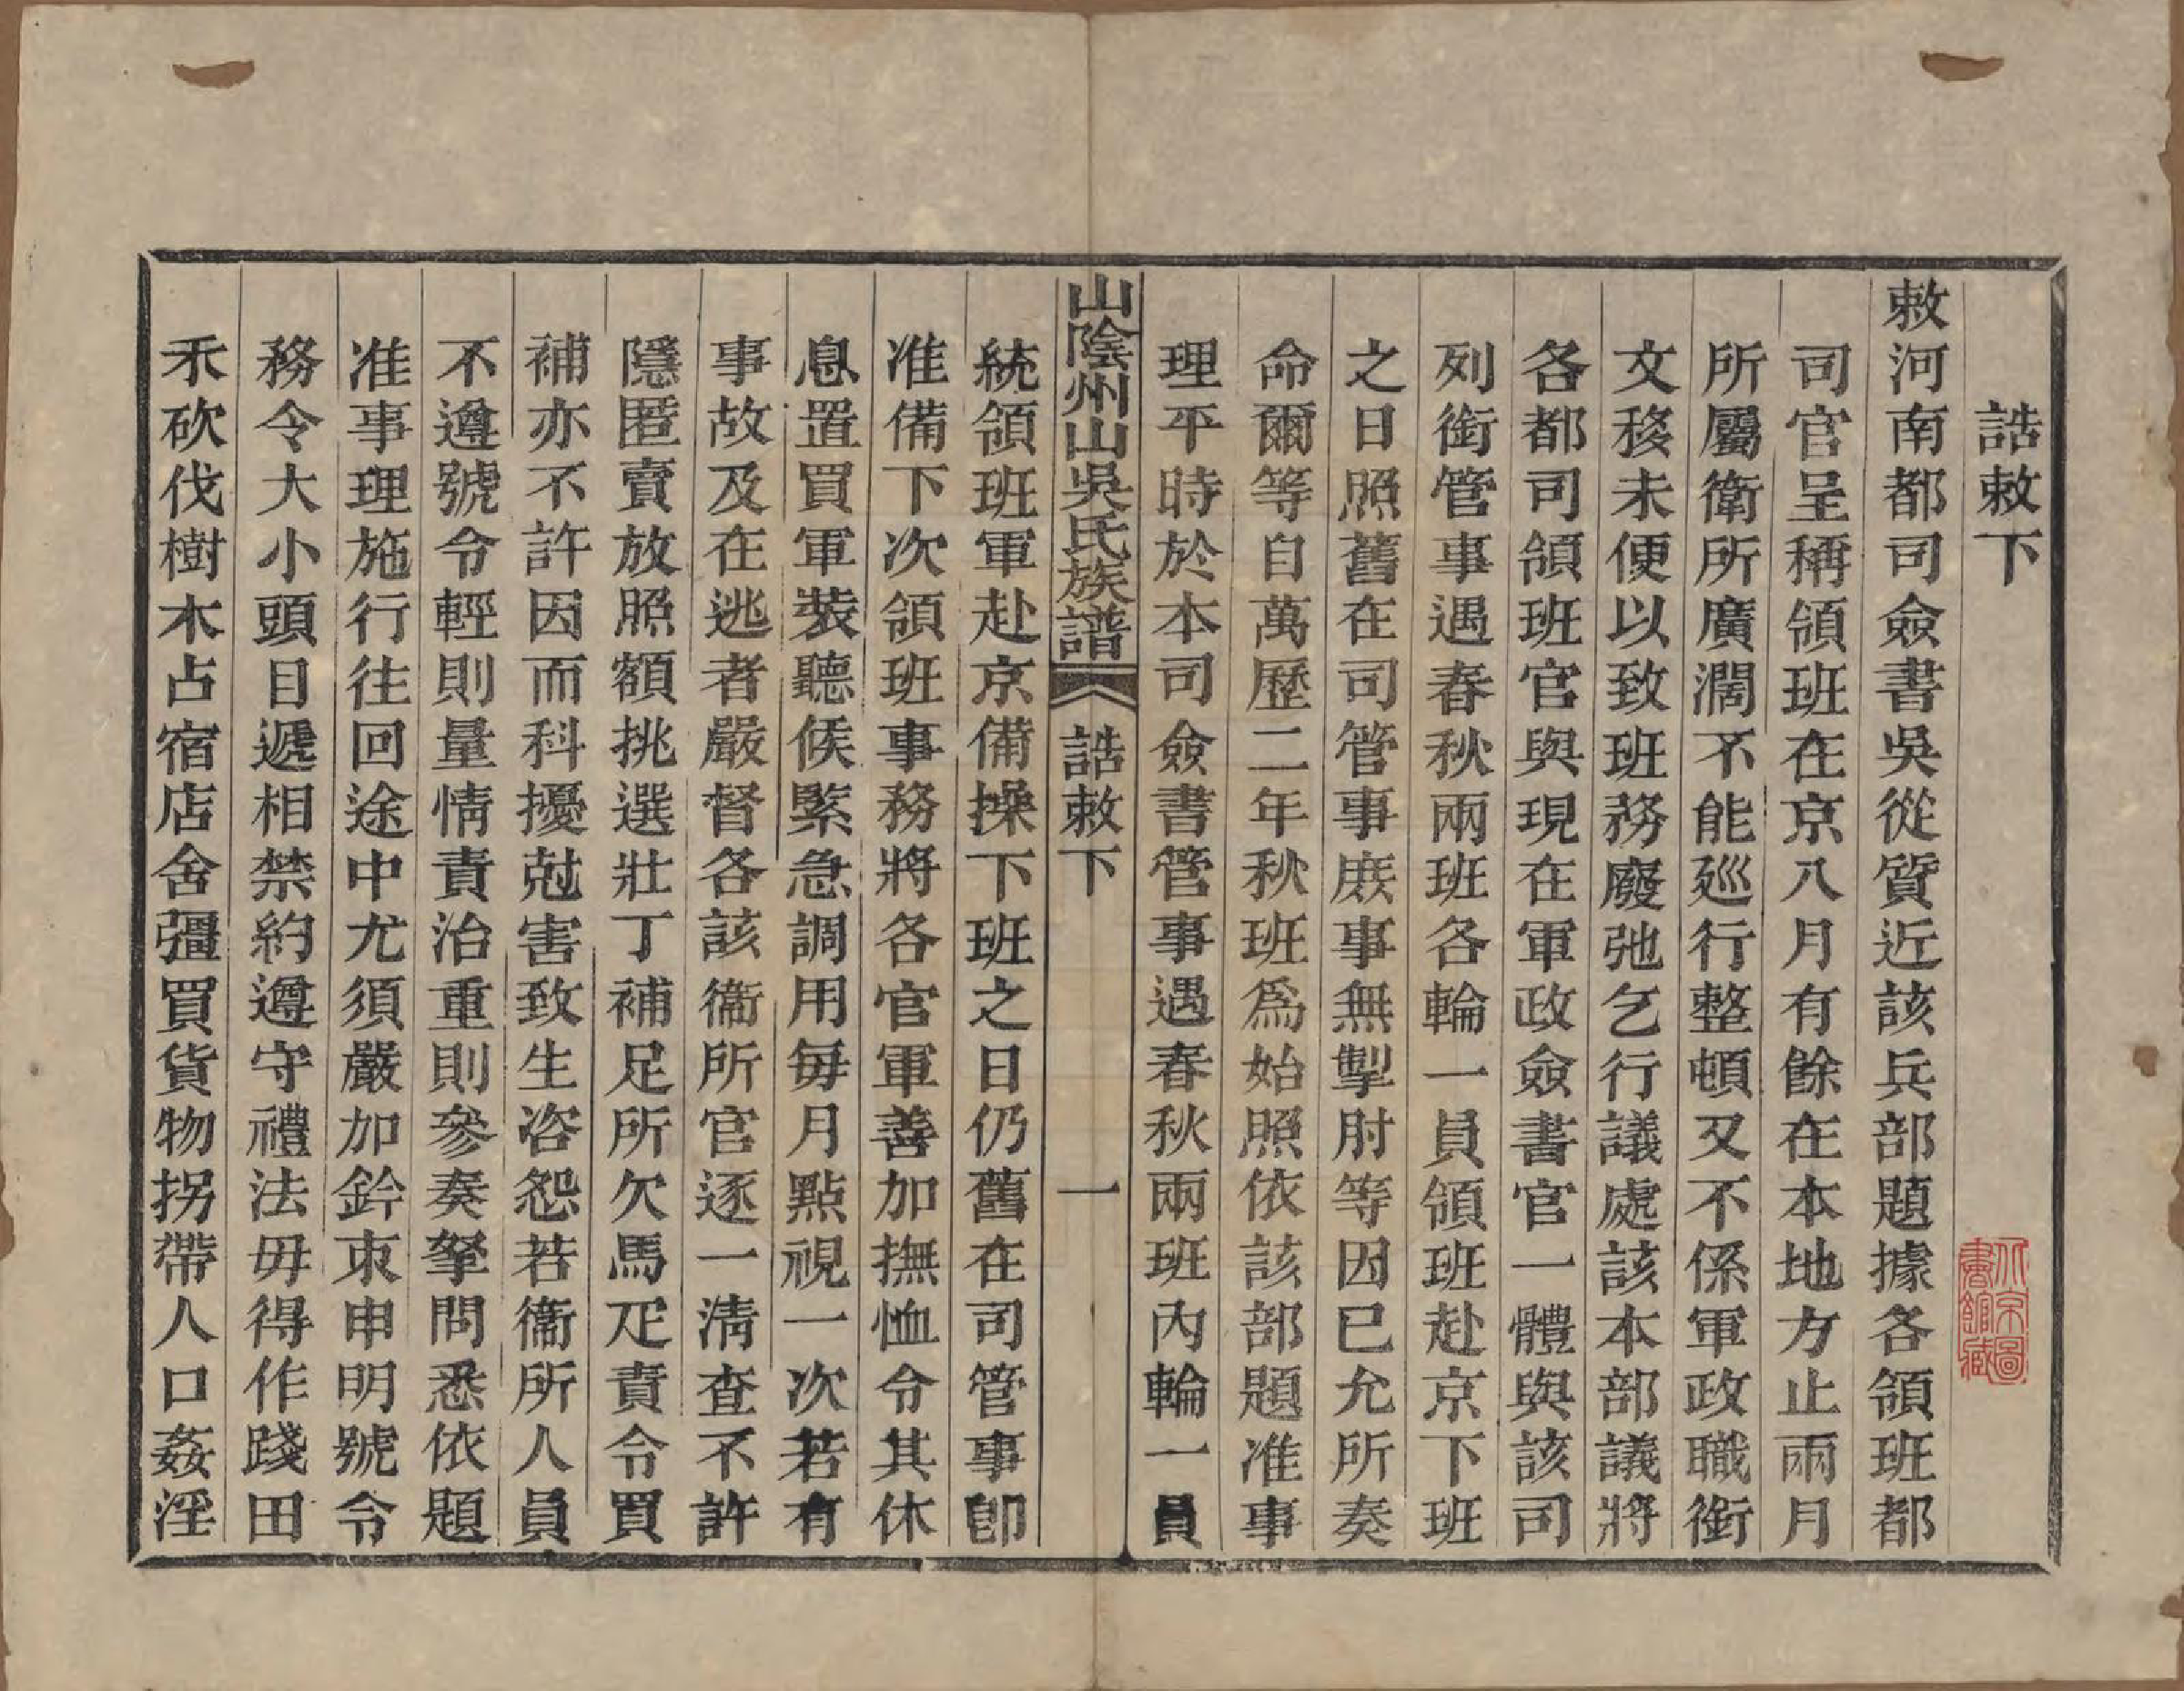 誥敕下
敕河南都司僉書吳從質近該兵部題據各領班都
司官呈稱領班在京八月有餘在本地方止兩月
所屬衛所廣濶不能廵行整頓又不係軍政職銜
文移未便以致班務廢弛乞行議處該本部議將
各都司領班官與現在軍政僉書官一體與該司
列銜管事遇春秋兩班各輪一員領班赴京下班
之日照舊在司管事庶事無掣肘等因已允所奏
命爾等自萬歷二年秋班爲始照依該部題准事
理平時於本司僉書管事遇春秋兩班內輪一員
山陰州山吳氏族譜 誥敕下 一
統領班軍赴京備操下班之日仍舊在司管事卽
准備下次領班事務將各官軍善加撫恤令其休
息置買軍裝聽候緊急調用每月點視一次若有
事故及在逃者嚴督各該衞所官逐一清查不許
隱匿賣放照額挑選壯丁補足所欠馬疋責令買
補亦不許因而科擾尅害致生咨怨若衞所人員
不遵號令輕則量情責治重則參奏拏問悉依題
准事理施行往回途中尤須嚴加鈐束申明號令
務令大小頭目遞相禁約遵守禮法毋得作踐田
禾砍伐樹木占宿店舍彊買貨物拐帶人口姦淫
北京圖
書館藏